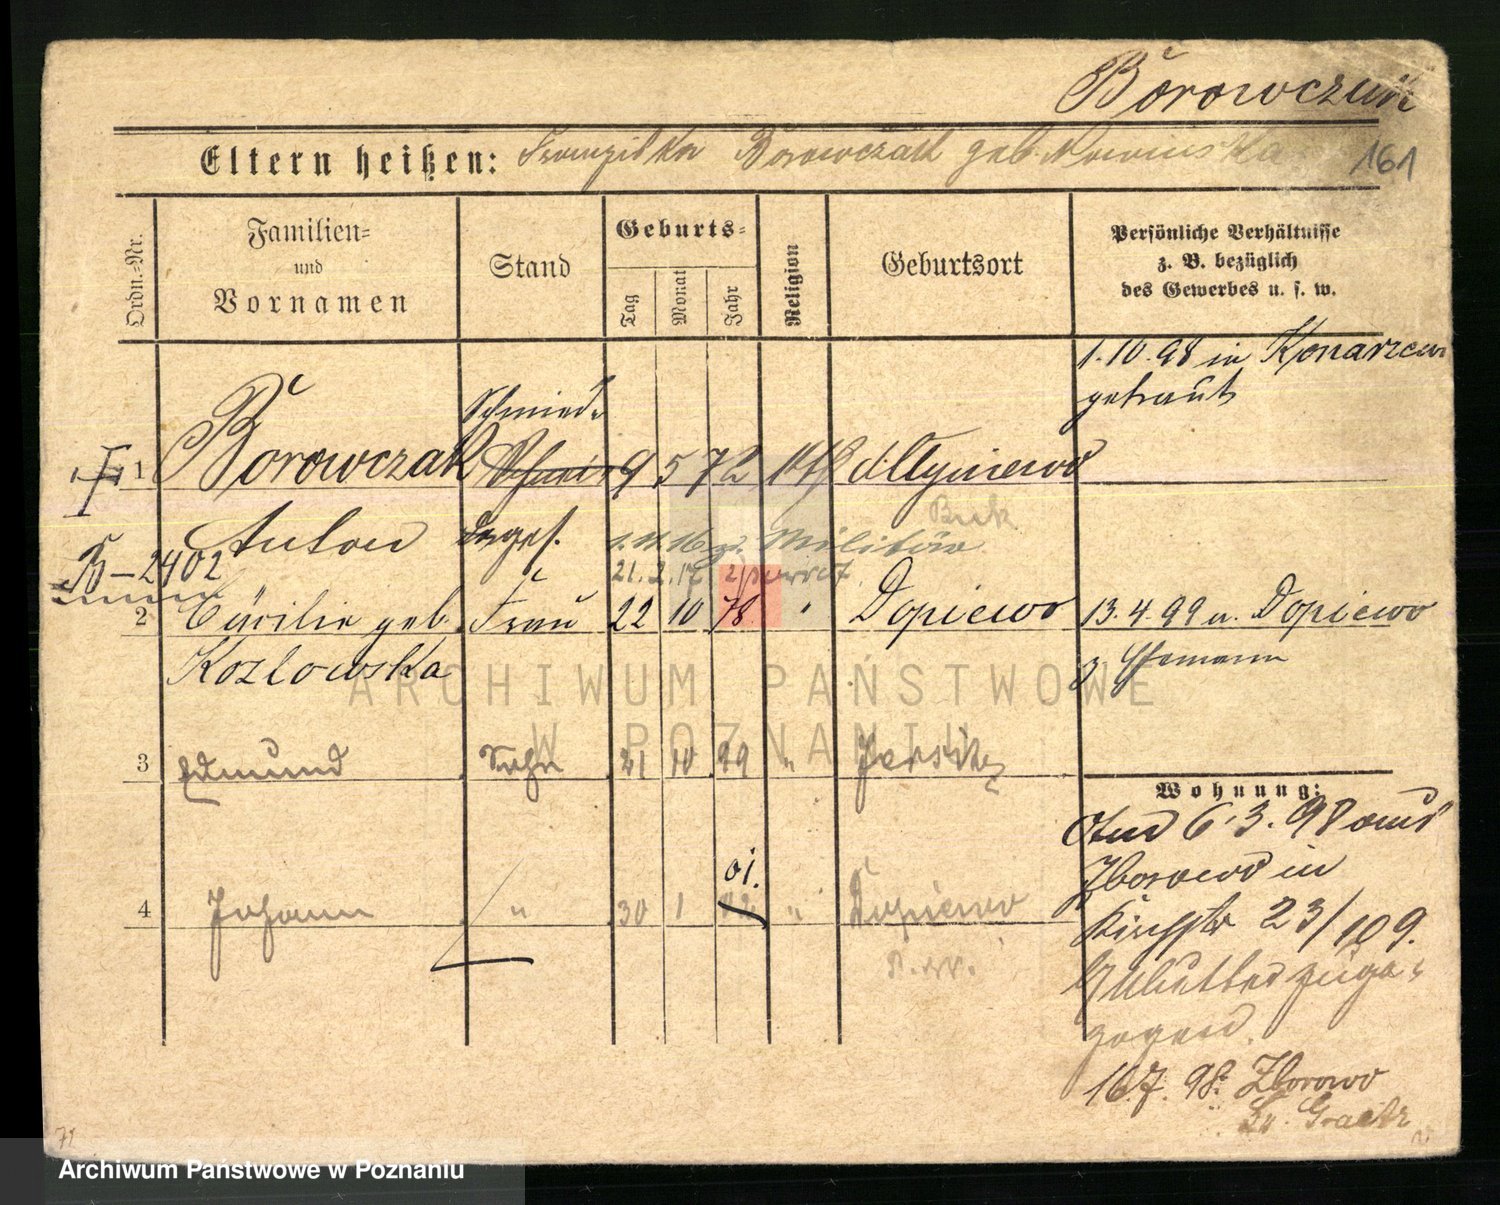 Borowczak
Eltern heißen: Franziska Borowczak geb. Nowinska 161
Ordn.-Nr.
Familien-
und
Vornamen
Stand
Geburts-
Tag
Monat
Jahr
Religion
Geburtsort
Persönliche Verhältnisse
z. B. bezüglich
des Gewerbes u. s. w.
1.10.98 in Konarzewo
getraut
Schmied
1 Borowczak 9 5 72 kth
Anton
Buk
1.11.16 z. Militär
B-2402
21.2.17
2 Cäcilie geb. Frau 22 10 78 " Dopiewo 13.4.99 u. Dopiewo
Kozlowska
3 Edmund Sohn 21 10 99 " Jersitz
Wohnung:
6.3.98 aus
Zborowo in
01.
4 Johann " 30 1 02 " Dopiewo
Kirchstr 23/109.
zuge-
zogen.
16.7.98. Zborowo
Kr. Graetz
71
ARCHIWUM PAŃSTWOWE
W POZNANIU
Archiwum Państwowe w Poznaniu